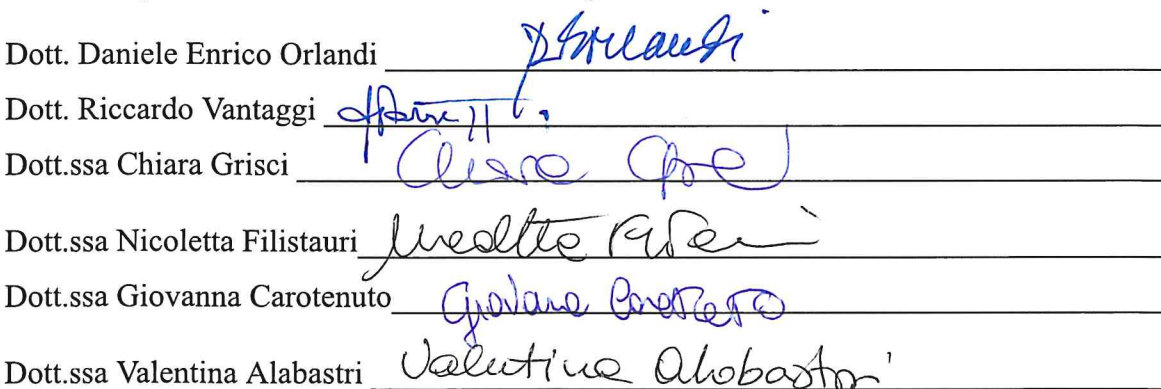 Dott. Daniele Enrico Orlandi DOrlandi
Dott. Riccardo Vantaggi
Dott.ssa Chiara Grisci Chiara
Dott.ssa Nicoletta Filistauri Nicoletta
Dott.ssa Giovanna Carotenuto Giovanna Carotenuto
Dott.ssa Valentina Alabastri Valentina Alabastri